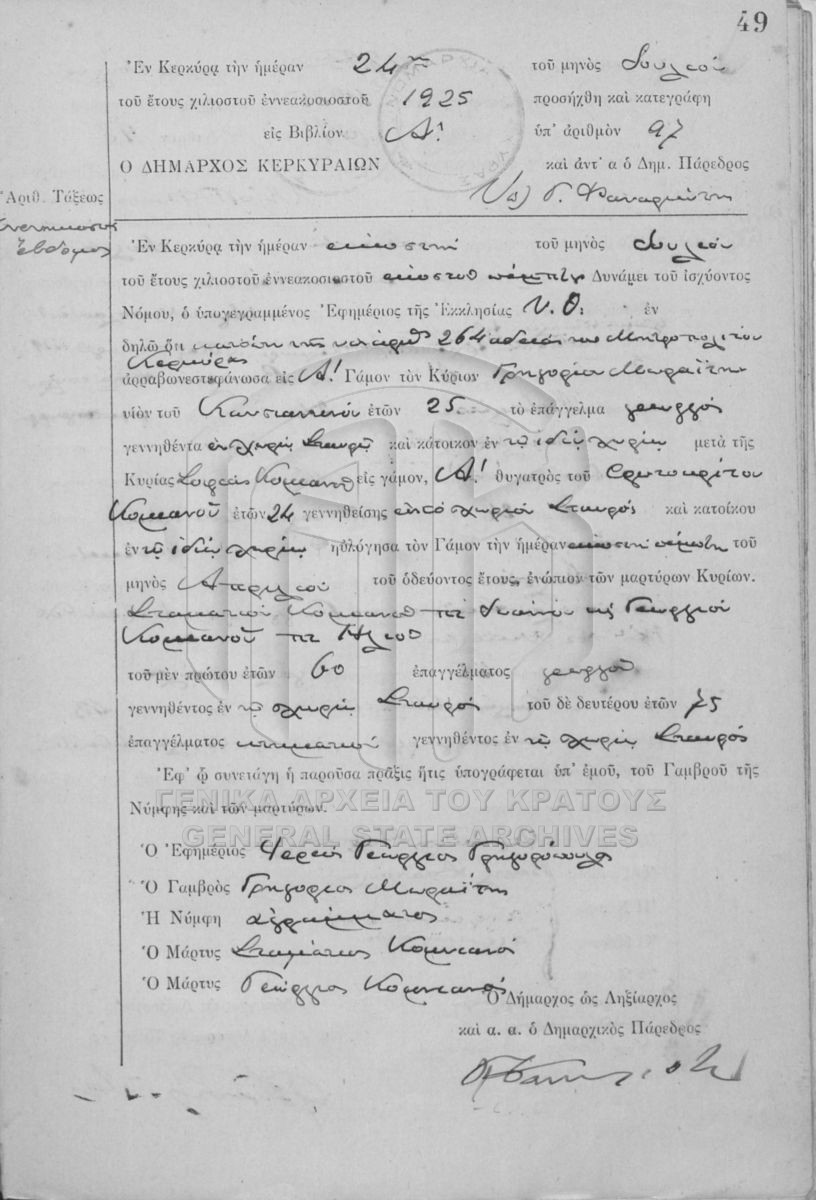 49
Ἐν Κερκύρᾳ τὴν ἡμέραν 24ην τοῦ μηνὸς Ἰουλίου
τοῦ ἔτους χιλιοστοῦ ἐννεακοσιοστοῦ 1925 προσήχθη καὶ κατεγράφη
εἰς Βιβλίον Α! ὑπ' ἀριθμὸν 97
Ο ΔΗΜΑΡΧΟΣ ΚΕΡΚΥΡΑΙΩΝ καὶ ἀντ' α ὁ Δημ. Πάρεδρος
Ἀριθ. Τάξεως
Ἐνενηκοστὸς
Ἕβδομος
Ἐν Κερκύρᾳ τὴν ἡμέραν εἰκοστὴν τοῦ μηνὸς Ἰουλίου
τοῦ ἔτους χιλιοστοῦ ἐννεακοσιοστοῦ εἰκοστοῦ πέμπτου Δυνάμει τοῦ ἰσχύοντος
Νόμου, ὁ ὑπογεγραμμένος Ἐφημέριος τῆς Ἐκκλησίας Υ. Θ. ἐν
δηλῶ ὅτι κατόπιν τῆς ὑπ' ἀριθ 264 ἀδείας του Μητροπολίτου
Κερκύρας
ἀρραβωνεστεφάνωσα εἰς Α! Γάμον τὸν Κύριον Γρηγόριον Μωραΐτην
υἱὸν τοῦ ἐτῶν 25 τὸ ἐπάγγελμα γεωργὸς
γεννηθέντα ἐν χωρίῳ Σταυρῷ καὶ κάτοικον ἐν τῷ ἰδίῳ χωρίῳ μετὰ τῆς
Κυρίας Σοφίας Κορμανοῦ εἰς γάμον, Α! θυγατρὸς τοῦ Ἐρωτοκρίτου
Κορμανοῦ ἐτῶν 24 γεννηθείσης εἰς τὸ χωρίον Σταυρός καὶ κατοίκου
ἐν τῷ ἰδίῳ χωρίῳ ηὐλόγησα τὸν Γάμον τὴν ἡμέραν εἰκοστὴν πέμπτην τοῦ
μηνὸς Ἀπριλίου τοῦ ὁδεύοντος ἔτους, ἐνώπιον τῶν μαρτύρων Κυρίων.
Σταματίου Κορμανοῦ του Ἰωάννου καὶ Γεωργίου
Κορμανοῦ του Ἠλιοῦ
τοῦ μὲν πρώτου ἐτῶν 60 ἐπαγγέλματος γεωργοῦ
γεννηθέντος ἐν τῷ χωρίῳ Σταυρός τοῦ δὲ δευτέρου ἐτῶν 75
ἐπαγγέλματος κτηματίου γεννηθέντος ἐν τῷ χωρίῳ Σταυρός
Ἐφ' ᾧ συνετάγη ἡ παροῦσα πρᾶξις ἥτις ὑπογράφεται ὑπ' ἐμοῦ, τοῦ Γαμβροῦ τῆς
Νύμφης καὶ τῶν μαρτύρων.
ΓΕΝΙΚΑ ΑΡΧΕΙΑ ΤΟΥ ΚΡΑΤΟΥΣ
GENERAL STATE ARCHIVES
Ὁ Ἐφημέριος Ἱερεὺς Γεώργιος Γρηγορόπουλος
Ὁ Γαμβρὸς Γρηγόριος Μωραΐτης
Ἡ Νύμφη ἀγράμματος
Ὁ Μάρτυς Σταμάτιος Κορμανός
Ὁ Μάρτυς Γεώργιος Κορμανός
Ὁ Δήμαρχος ὡς Ληξίαρχος
καὶ α. α. ὁ Δημαρχικὸς Πάρεδρος